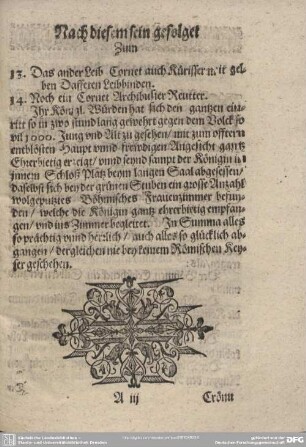 Nach diesem sein gefolget
Zum
13. Das ander Leib Cornet auch Kürisser mit gel-
ben Daffeten Leibbinden.
14. Noch ein Cornet Archibusier Reutter.
Ihr Kön: zl. Würden hat sich den gantzen ein-
ritt so in zwo stund lang gewehrt gegen dem Volck so
vil 1000. Jung vnd Alt zu gesehen/ mit zum offtern
entblösten Haupt vnnd frewdigen Angesicht gantz
Ehrerbietig erzeigt/ vnnd seynd sampt der Königin in
jnnern Schloß Platz beym langen Saal abgesessen/
daselbst sich bey der grünen Stuben ein grosse Anzahl
wolgeputztes Böhmisches Frauenzimmer befun-
den/ welche die Königin gantz ehrerbietig empfan-
gen/ vnd ins Zimmer begleitet. In Summa alles
so prächtig vnnd herrlich/ auch alles so glücklich ab-
gangen/ dergleichen nie bey keinem Römischen Key-
ser geschehen.
A iij Crönu